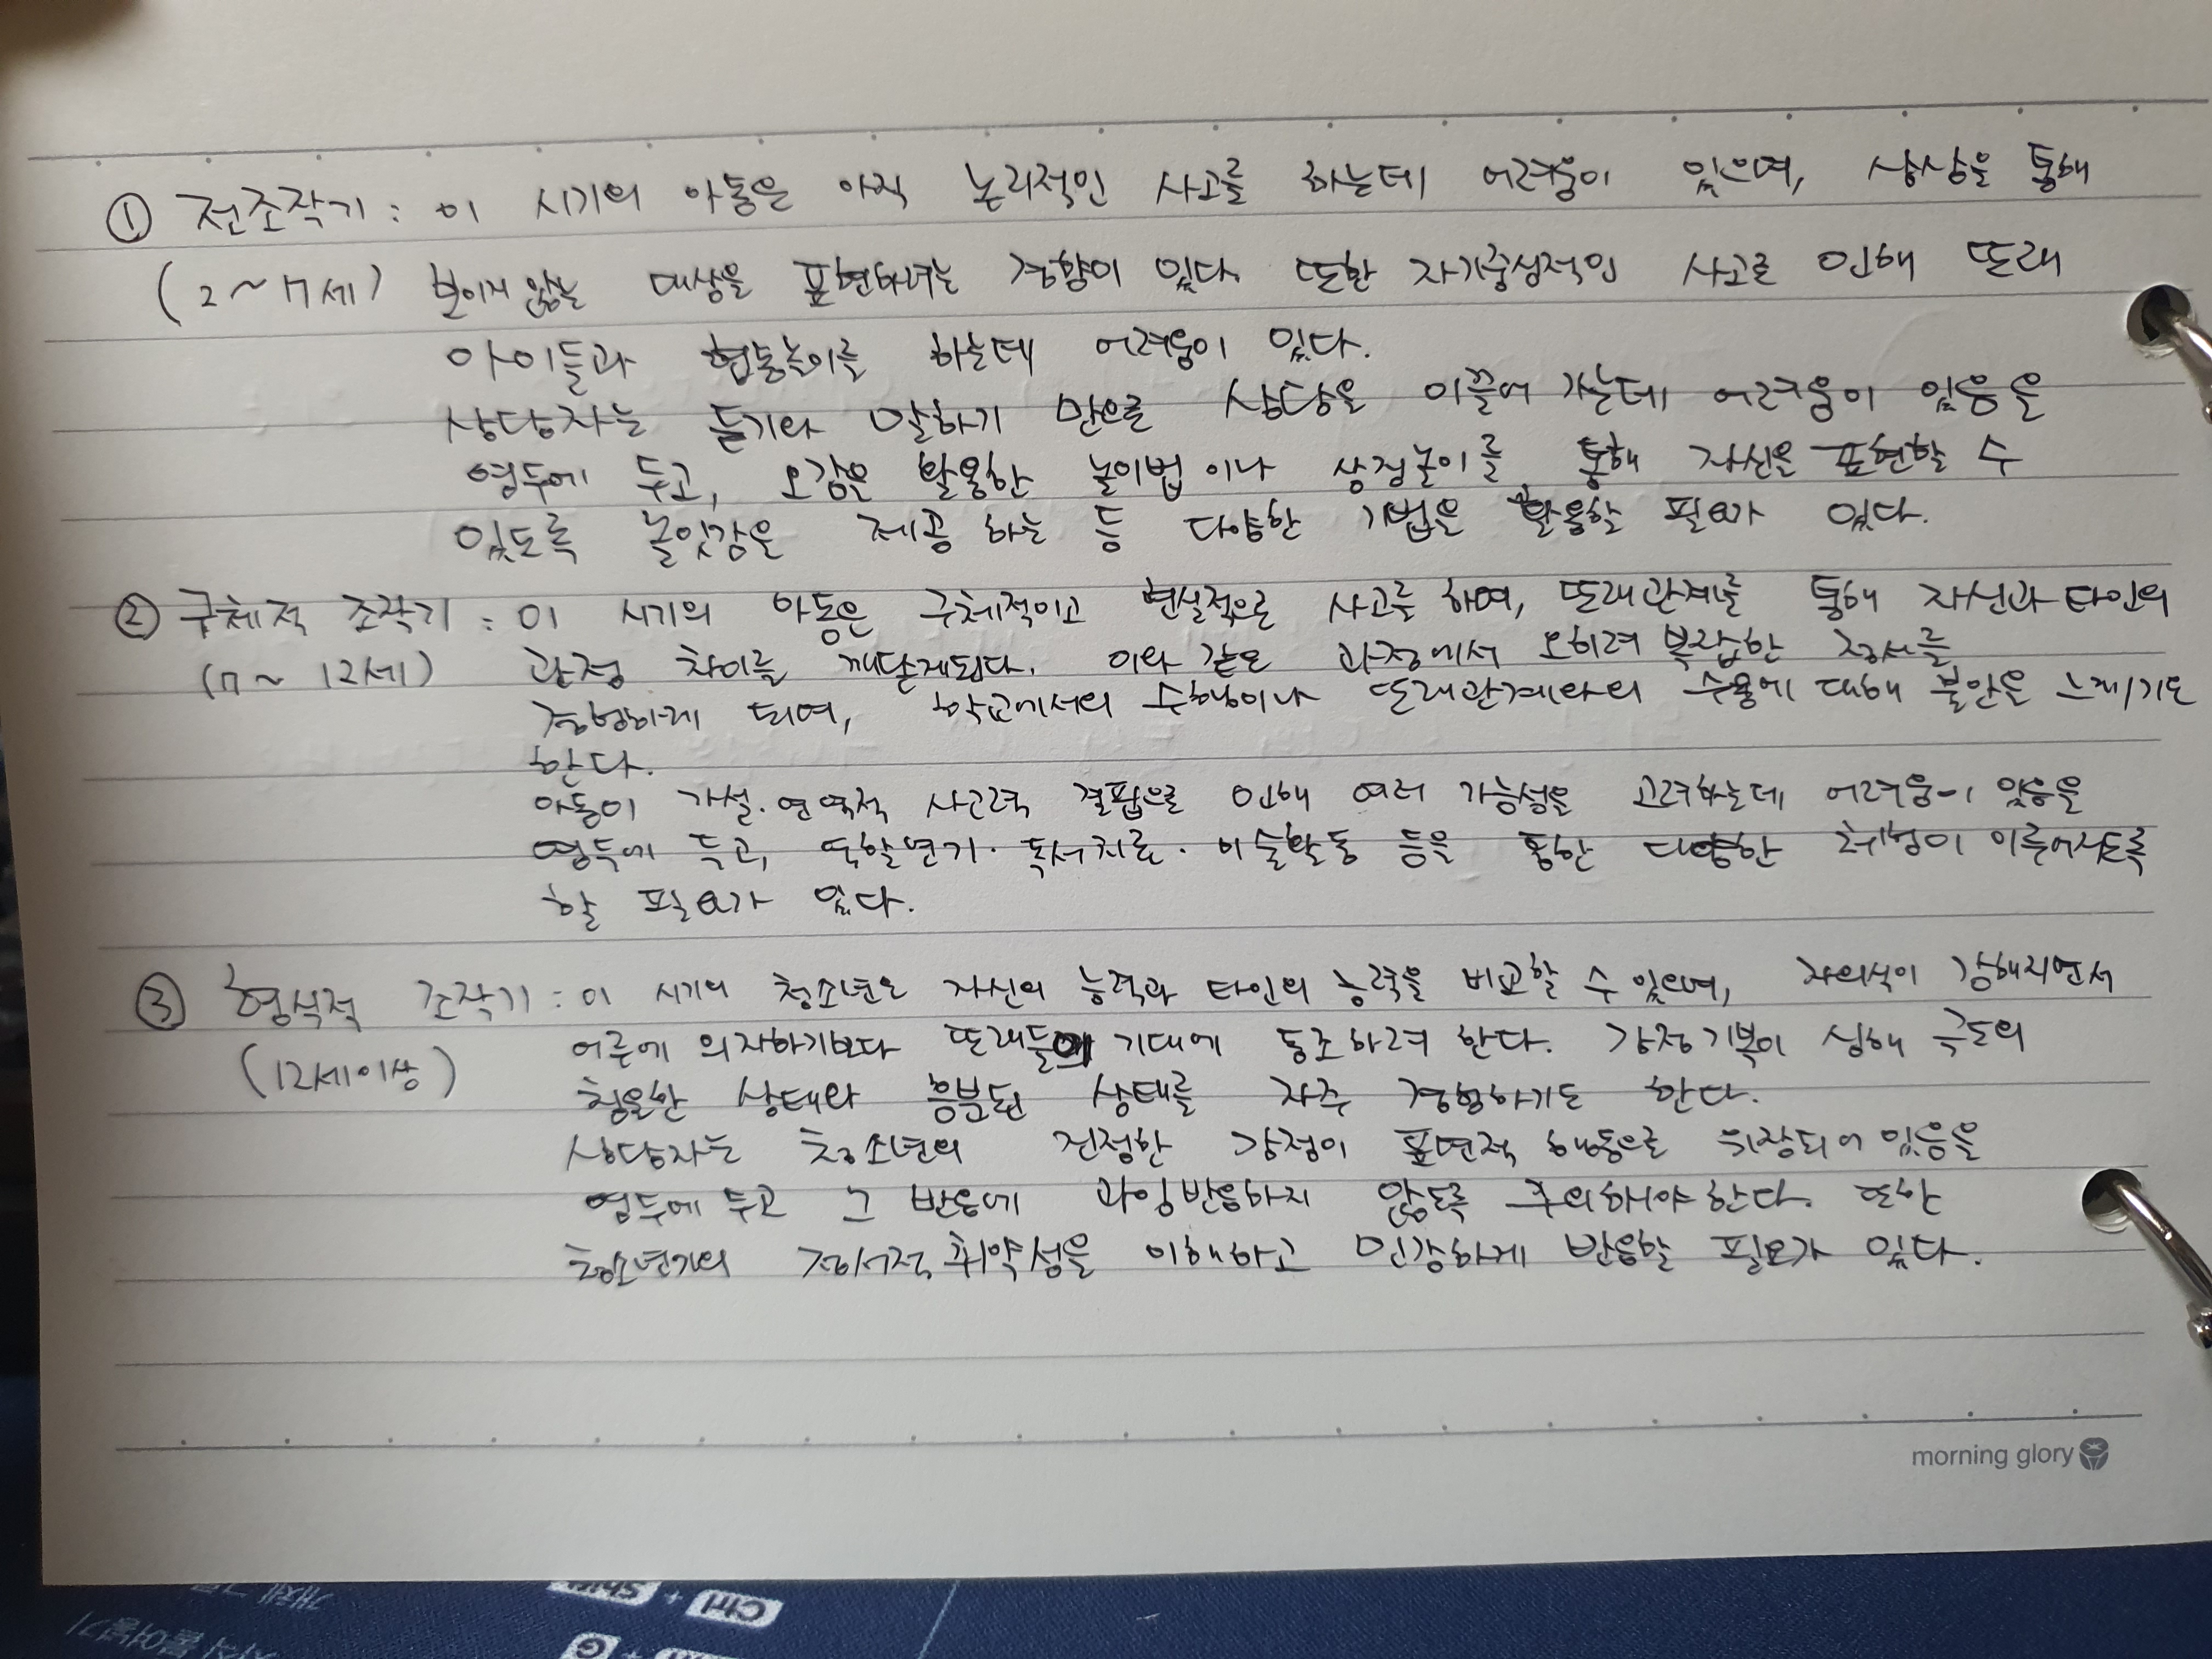 ① 전조작기 : 이 시기의 아동은 아직 논리적인 사고를 하는데 어려움이 있으며, 상상을 통해
(2~7세) 보이지 않는 대상을 표현하려는 경향이 있다. 또한 자기중심적인 사고로 인해 또래
아이들과 협동놀이를 하는데 어려움이 있다.
상담자는 듣기와 말하기 만으로 상담을 이끌어 가는데 어려움이 있음을
염두에 두고, 오감을 활용한 놀이법이나 상징놀이를 통해 자신을 표현할 수
있도록 놀잇감을 제공하는 등 다양한 기법을 활용할 필요가 있다.
② 구체적 조작기 : 이 시기의 아동은 구체적이고 현실적으로 사고를 하며, 또래관계를 통해 자신과 타인의
(7~12세) 관점 차이를 깨닫게된다. 이와 같은 과정에서 오히려 복잡한 정서를
경험하게 되며, 학교에서의 수행이나 또래관계와의 수용에 대해 불안을 느끼기도
한다.
아동이 가설.연역적 사고력 결핍으로 인해 여러 가능성을 고려하는데 어려움이 있음을
염두에 두고, 역할연기·독서치료·미술활동 등을 통한 다양한 체험이 이루어지도록
할 필요가 있다.
③ 형식적 조작기 : 이 시기의 청소년은 자신의 능력과 타인의 능력을 비교할 수 있으며, 자의식이 강해지면서
(12세이상) 어른에 의지하기보다 또래들의 기대에 동조하려 한다. 감정기복이 심해 극도의
침울한 상태와 흥분된 상태를 자주 경험하기도 한다.
상담자는 청소년의 진정한 감정이 표면적 행동으로 위장되어 있음을
염두에 두고 그 반응에 과잉반응하지 않도록 주의하여야 한다. 또한
청소년기의 정서적 취약성을 이해하고 민감하게 반응할 필요가 있다.
morning glory
Shift + Ctrl